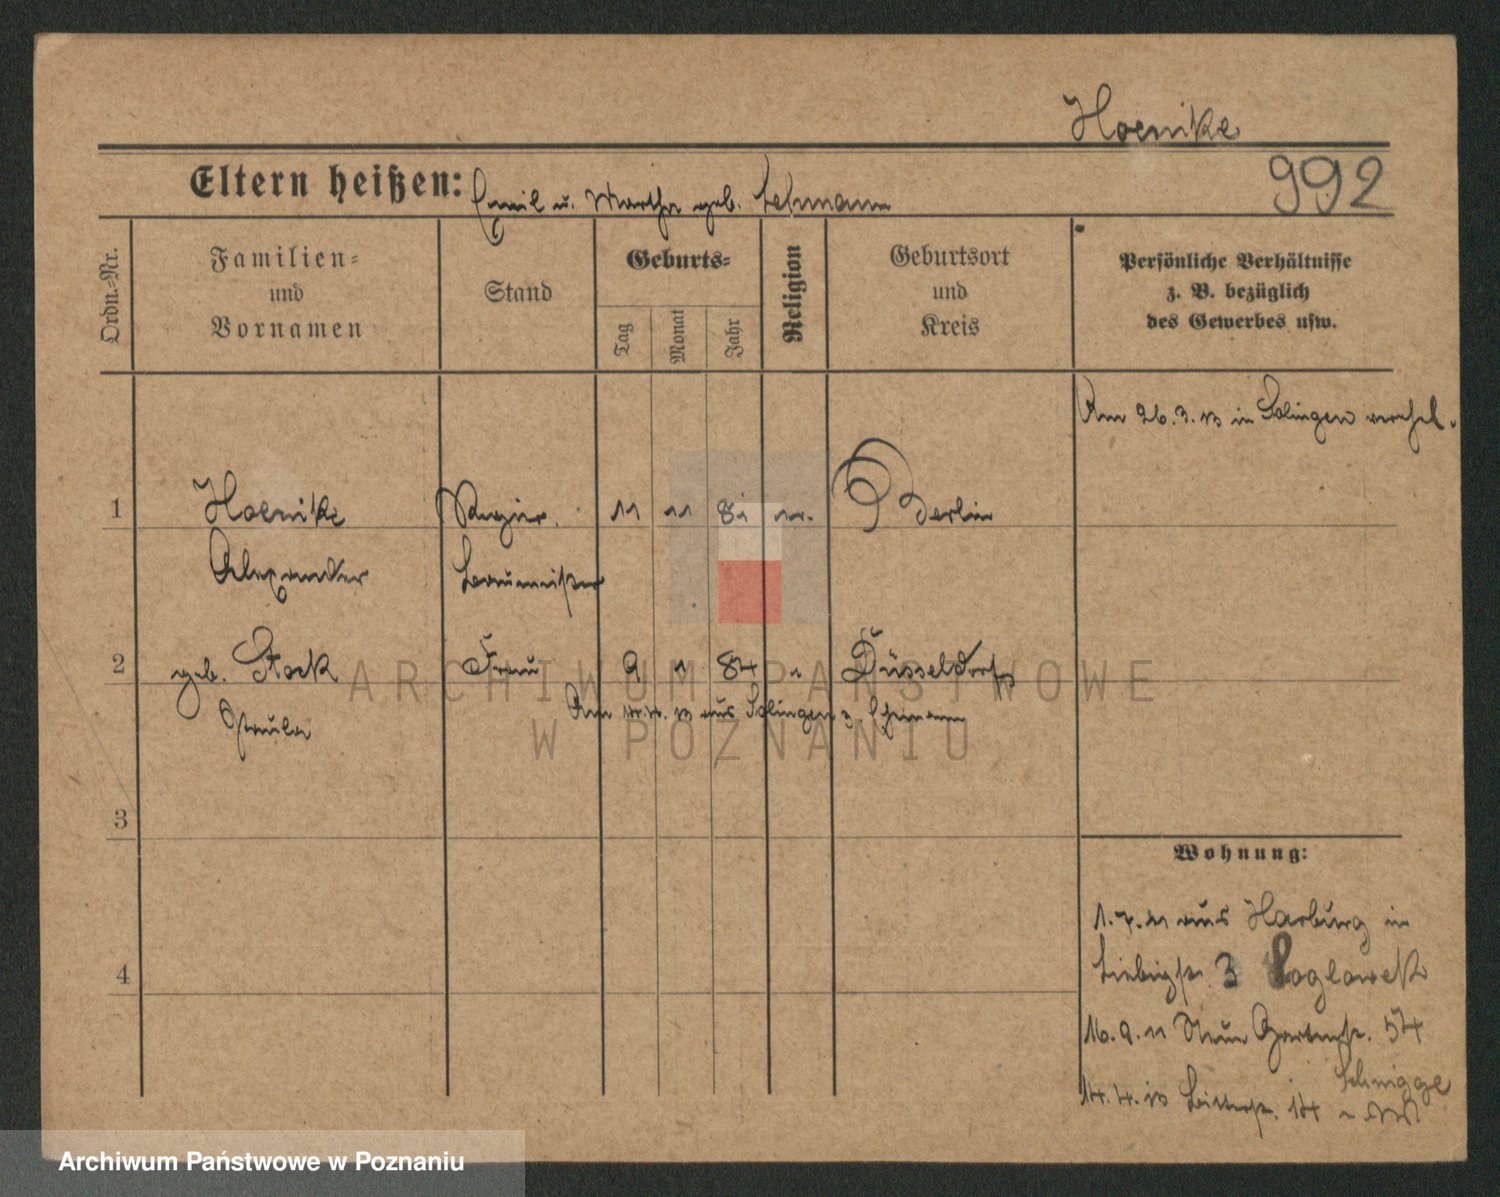 Hoenike
992
Eltern heißen: Emil u. Martha geb. Lehmann
Ordn.-Nr.
Familien-
und
Vornamen
Stand
Geburts-
Tag
Monat
Jahr
Religion
Geburtsort
und
Kreis
Persönliche Verhältnisse
z. B. bezüglich
des Gewerbes usw.
Am 26. 3. 13 in Solingen verehel.
1 Hoenike Regier. 11 11 81 ev. Berlin
Alexander Baumeister
2 geb. Stock Frau 9 1 84 " Düsseldorf
Paula Am 14. 4. 13 aus Solingen z. Ehemann
3
4
Wohnung:
1. 7. 11 aus Harburg in
Liebigstr. 3
16. 9. 11 Neue Gartenstr. 54
14. 4. 13 14
ARCHIWUM PAŃSTWOWE
W POZNANIU
Archiwum Państwowe w Poznaniu